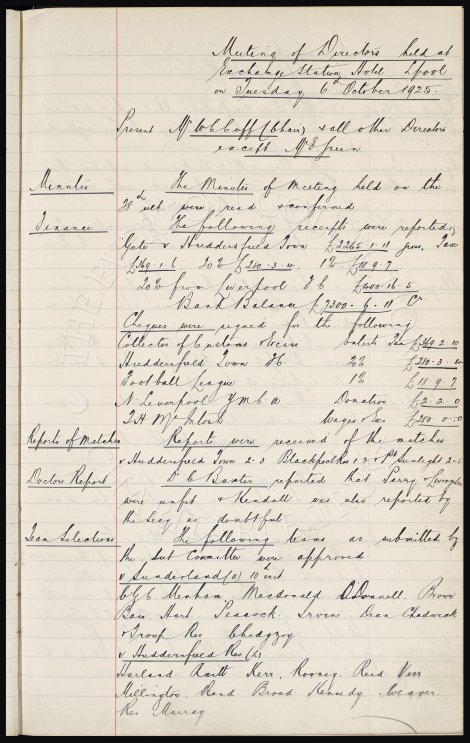 Meeting of Directors held at
Exchange Station Hotel Lpool
on Tuesday 6th October 1925.
Present Mr W C Cuff (Chair) & all other Directors
except Mr E Green
Minutes The Minutes of Meeting held on the
28th ult were read & confirmed
Finance The following receipts were reported;
Gate v Huddersfield Town £2265.1.11 gross, Tax
£369.1.6 20% £280.3.4. 1% £18.9.7
20% from Liverpool F C £400.16.5
Bank Balance £7300.9.11 Cr
Cheques were signed for the following
Collector of Customs & Excise Enterts Tax £369.2.10
Huddersfield Town FC. 20% £280.3.4
Football League 1% £18.9.7
N. Liverpool Y M C A Donation £2.2.0
T.H. McIntosh Wages & Exs £280.0.0
Reports of Matches Reports were received of the matches
v Huddersfield Town 2.3 Blackpool Res 1.2 & Pt Sunlight 2-
Doctors Report Dr C Baxter reported that Parry & Livingstone
were unfit & Kendall was also reported by
the Secy as doubtful
Team Selections The following teams as submitted by
the Sub Committee were approved.
v Sunderland (a) 10th inst
Menham Macdonald O'Donnell Brown
Bain, Hart Peacock Irvine Dean Chadwick
& Troup Res Chedgzoy
v Huddersfield Res (h)
Harland Raitt Kerr, Rooney Reid Virr
Millington Rand Broad Kennedy Weaver
Res Murray